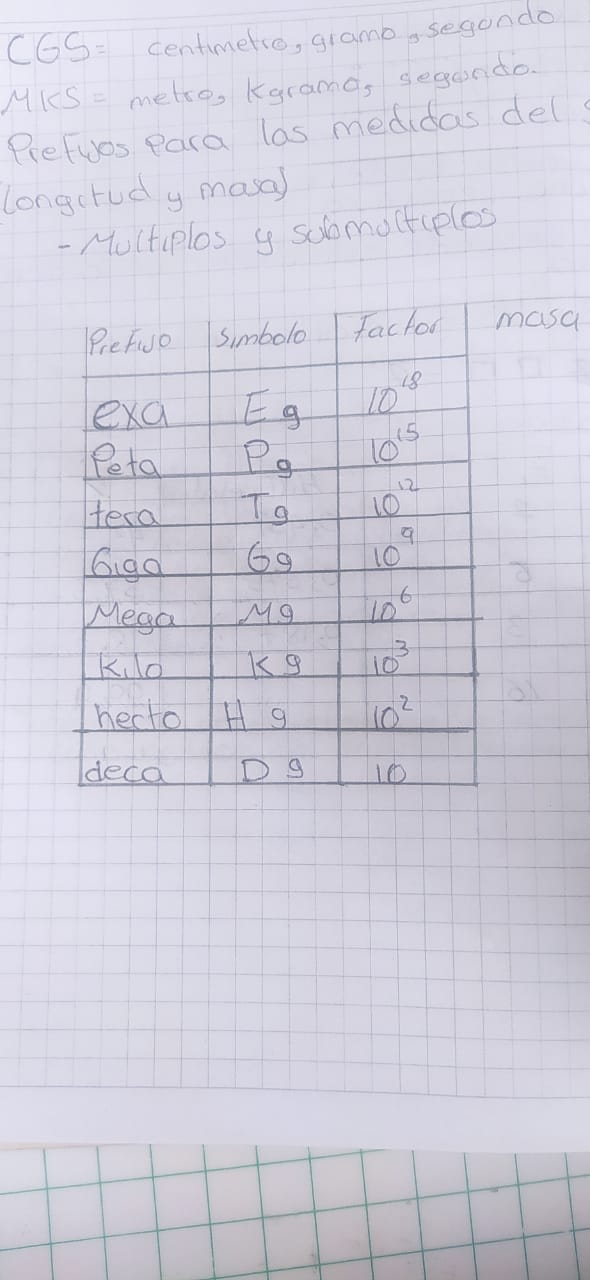 CGS = centimetro, gramo, segundo
MKS = metro, Kgramo, segundo.
Prefijos para las medidas del
longitud y masa)
- Multiplos y submultiplos
Prefijo Simbolo Factor masa
exa Eg 10^18
Peta Pg 10^15
tera Tg 10^12
Giga Gg 10^9
Mega Mg 10^6
Kilo Kg 10^3
hecto Hg 10^2
deca Dg 10